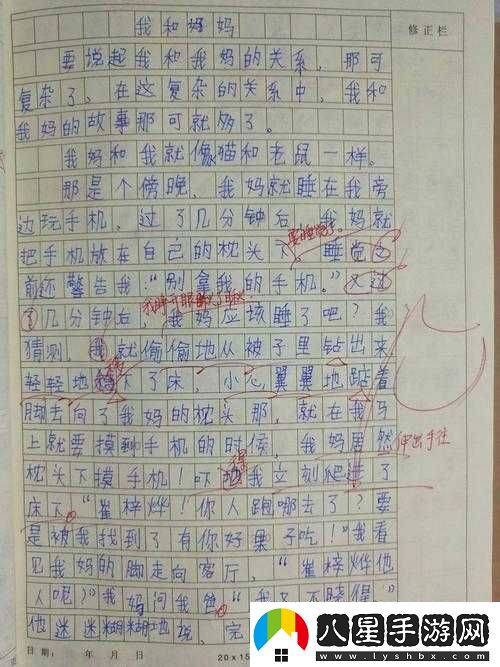 我和妈妈
修正栏
要说起我和我妈的关系，那可
复杂了，在这复杂的关系中，我和
我妈的故事那可就多了。
我妈和我就像猫和老鼠一样。
那是个傍晚，我妈就睡在我旁
边玩手机，过了几分钟后，我妈就
要睡觉了。
把手机放在自己的枕头下，睡觉
前还警告我：“别拿我的手机。”又过
我睁开眼
几分钟后，我妈应该睡了吧？我
猜测，我就偷偷地从被子里钻出来
轻轻地下了床，小心翼翼地踮着
脚去向了我妈的枕头那，就在我马
上就要摸到手机的时候，我妈居然伸出手往
枕头下摸手机！吓得我立刻爬进了
床下。“崔梓烨！你人跑哪去了？要
是被我找到了有你好果子吃！”我看
见我妈的脚走向客厅，“崔梓烨他
人呢？”我妈问我爸。“我又不晓得”
他迷迷糊糊地说，完
日期： 年 月 日
20×15
八星手游网
www.lyshbx.com